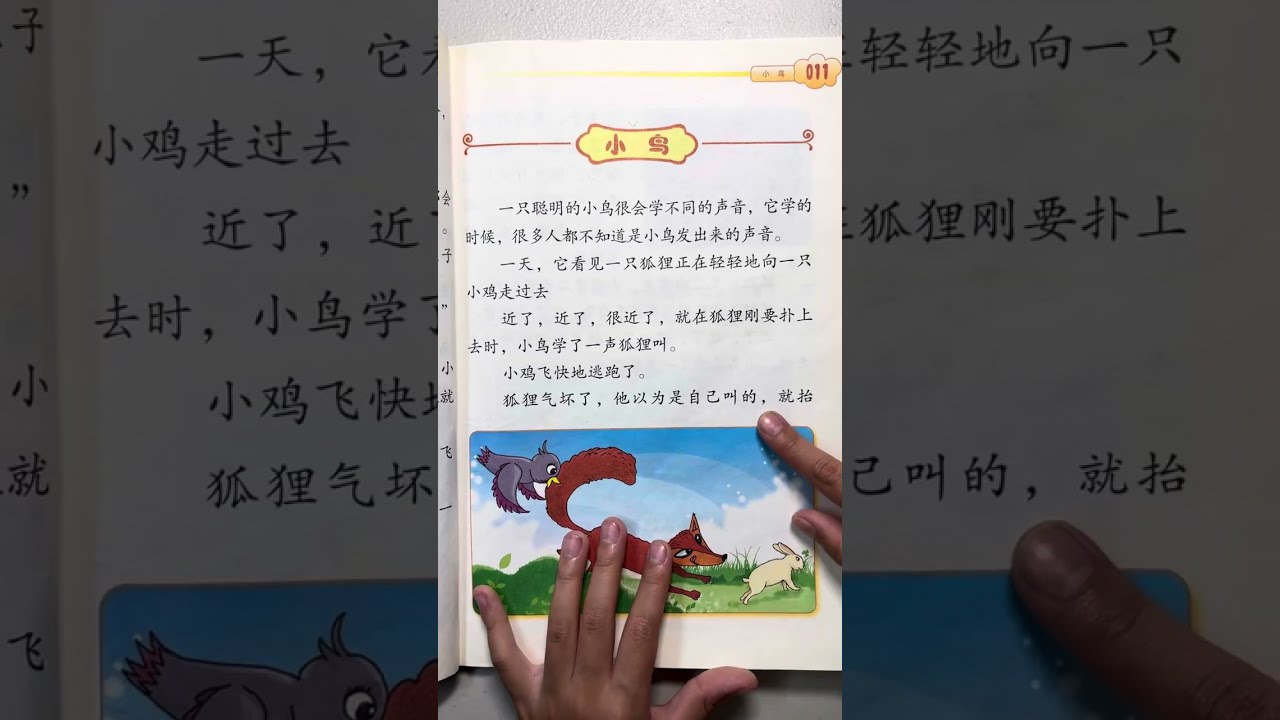 小 鸟 011
小 鸟
一只聪明的小鸟很会学不同的声音，它学的
时候，很多人都不知道是小鸟发出来的声音。
一天，它看见一只狐狸正在轻轻地向一只
小鸡走过去
近了，近了，很近了，就在狐狸刚要扑上
去时，小鸟学了一声狐狸叫。
小鸡飞快地逃跑了。
狐狸气坏了，他以为是自己叫的，就抬